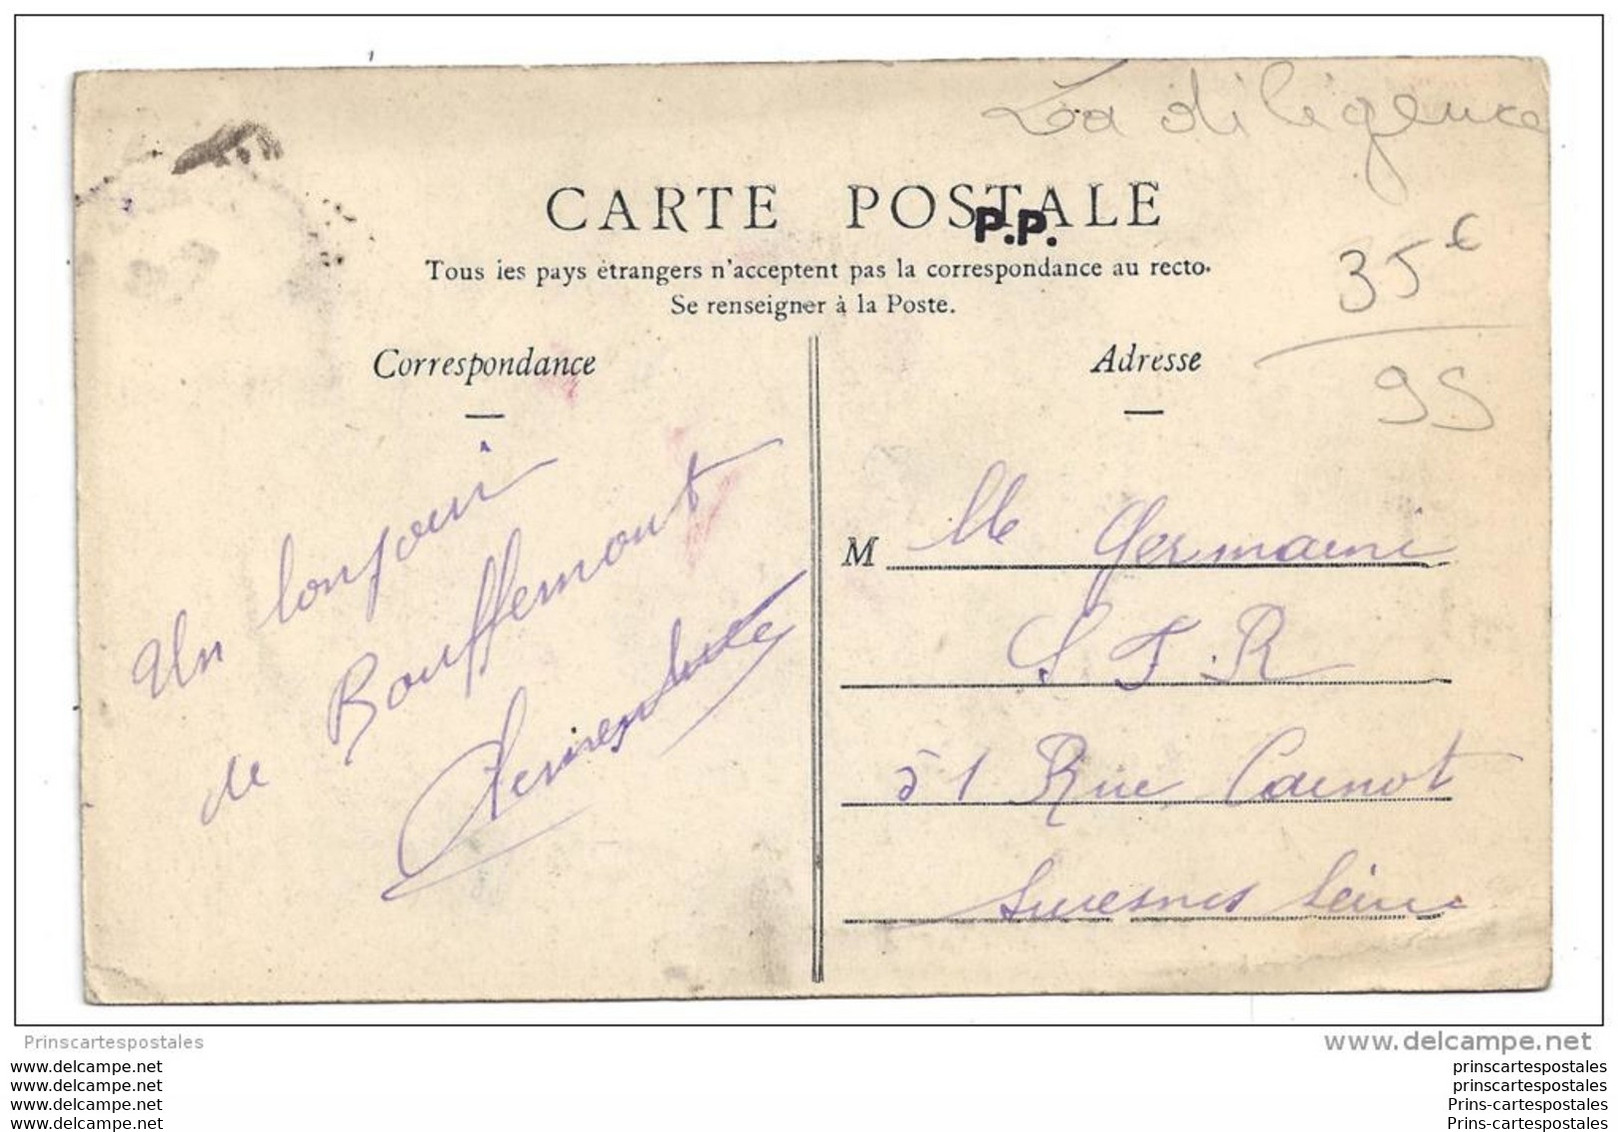 La diligence
CARTE POSTALE
P.P.
Tous les pays étrangers n'acceptent pas la correspondance au recto.
Se renseigner à la Poste.
35€
95
Correspondance
Adresse
Un bonjour
de Bouffemont
M lle Germaine
S T R
51 Rue Carnot
Suresnes Seine
Prinscartespostales
www.delcampe.net
www.delcampe.net
www.delcampe.net
www.delcampe.net
www.delcampe.net
prinscartespostales
prinscartespostales
Prins-cartespostales
Prins-cartespostales